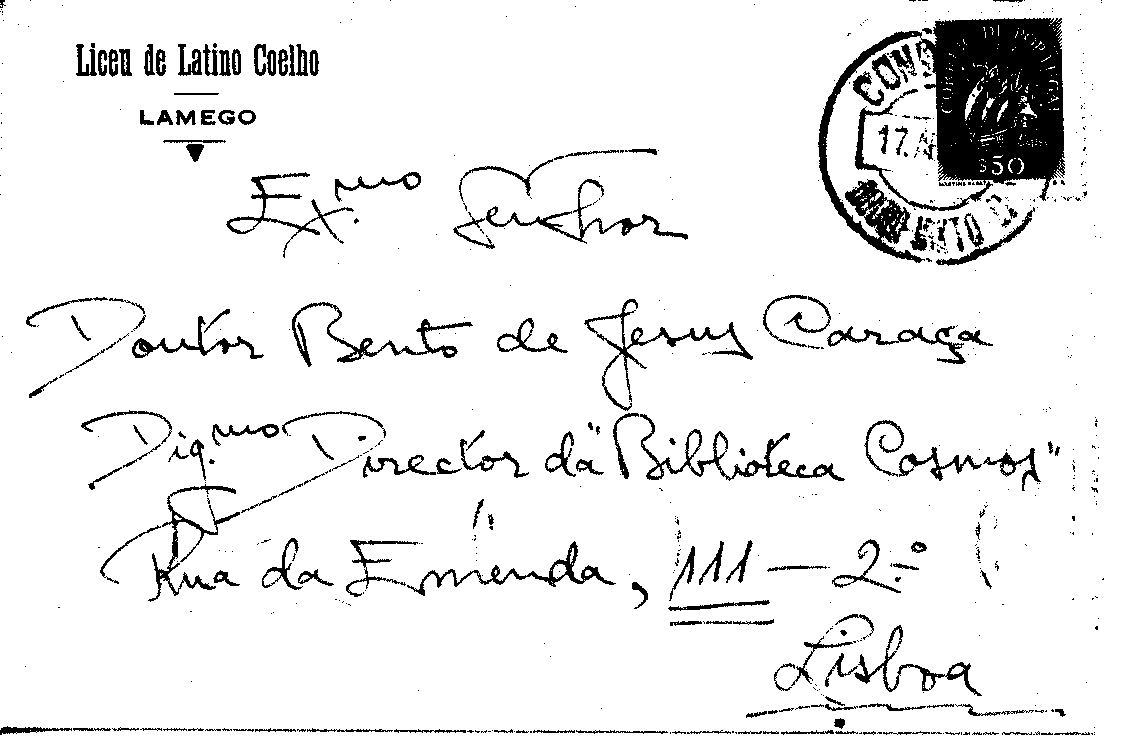 Liceu de Latino Coelho
LAMEGO
CORREIO DE PORTUGAL
$50
17.
Ex.mo Senhor
Doutor Bento de Jesus Caraça
Dig.mo Director da "Biblioteca Cosmos"
Rua da Emenda, 111 — 2.º
Lisboa